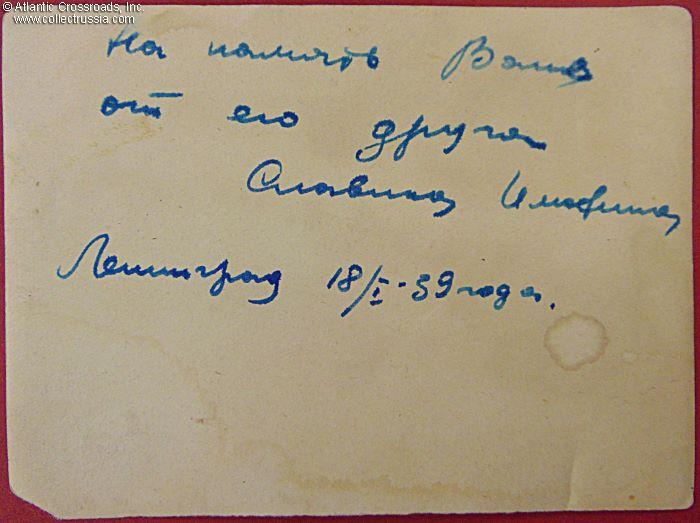 © Atlantic Crossroads, Inc.
www.collectrussia.com
На память
от его друга
Славина
Ленинград 18/I-39 года.